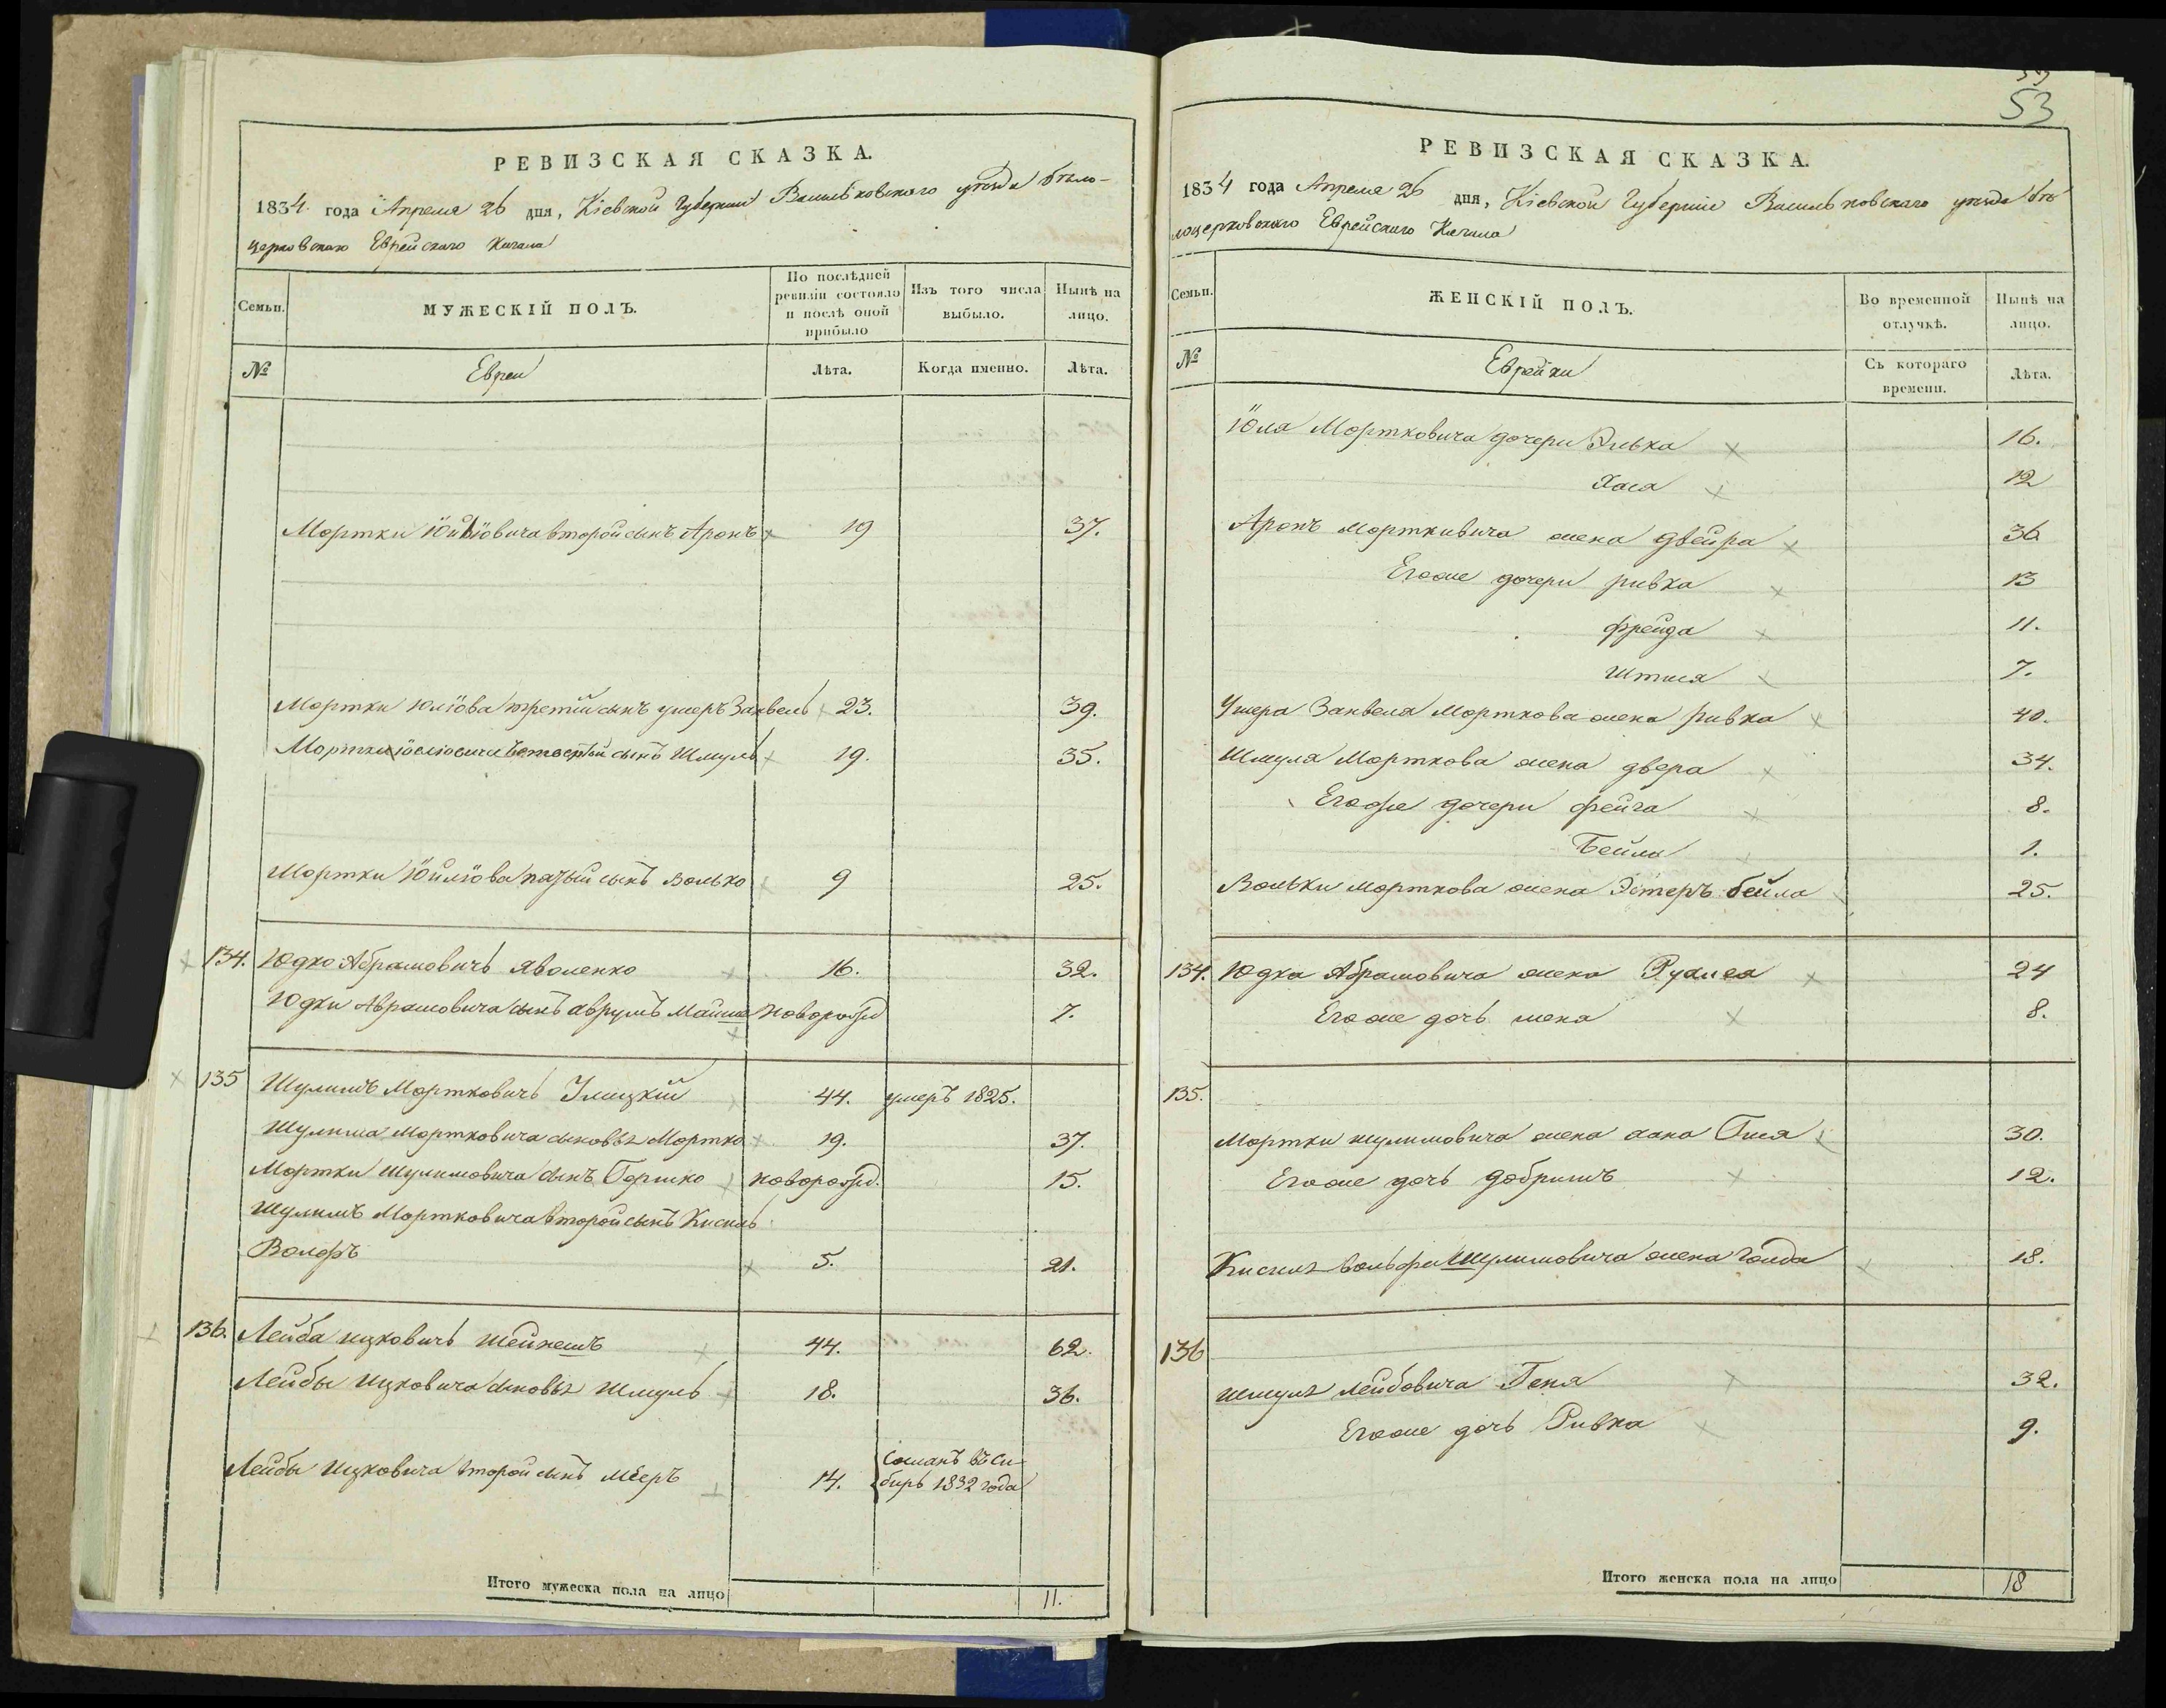 РЕВИЗСКАЯ СКАЗКА.
1834 года Апреля 26 дня, Кіевской Губерніи Васильковскаго уѣзда бѣло-
церковскаго Еврейскаго Кагала
Семьи.
МУЖЕСКІЙ ПОЛЪ.
По послѣдней ревизіи состояло и послѣ оной прибыло
Изъ того числа выбыло.
Нынѣ на лицо.
№
Евреи
Лѣта.
Когда именно.
Лѣта.
Мортки второй сынъ Аронъ 19 37.
Мортки третій сынъ умеръ Занвель 23. 39.
Мортки четвертый сынъ Шмуль 19. 35.
Мортки пятый сынъ Волько 9 25.
134. Юдко Абрамовичъ Яволенко 16. 32.
Юдки Аврамовича сынъ аврумъ Маише новорожд 7.
135 Шулимъ Мортковичъ Улицкій 44. умеръ 1825.
Шулима Мортковича сыновья Мортко 19. 37.
Мортки Шулимовича сынъ Гершко новорожд. 15.
Шулимъ Мортковича второй сынъ Кисиль
Волфъ 5. 21.
136. Лейба ицковичъ Шейнешъ 44. 62.
Лейбы ицковича сыновья Шмуль 18. 36.
Лейбы ицковича второй сынъ Мееръ 14. Сосланъ въ Си-
бирь 1832 года
Итого мужеска пола на лицо 11.
53
РЕВИЗСКАЯ СКАЗКА.
1834 года Апреля 26 дня, Кіевской Губерніи Васильковскаго уѣзда бѣ
лоцерковскаго Еврейскаго Кагала
Семьи.
ЖЕНСКІЙ ПОЛЪ.
Во временной отлучкѣ.
Нынѣ на лицо.
№
Еврейки
Съ котораго времени.
Лѣта.
Юля Мортковича дочери Элька 16.
Хася 12
Аронъ Мортковича жена двейра 36
Его же дочери ривка 13
фрейда 11.
7.
Умера Занвеля Морткова жена ривка 40.
Шмуля Морткова жена двера 34.
Его же дочери фейга 8.
Бейла 1.
Вольки Морткова жена Эстеръ бейла 25.
134. Юдка Абрамовича жена 24
Его же дочь 8.
135.
Мортки шулимовича жена хана Гися 30.
Его же дочь добришъ 12.
Кисиля вольфа Шулимовича жена голда 18.
136
шмуля лейбовича Геня 32.
Его же дочь Ривка 9.
Итого женска пола на лицо 18